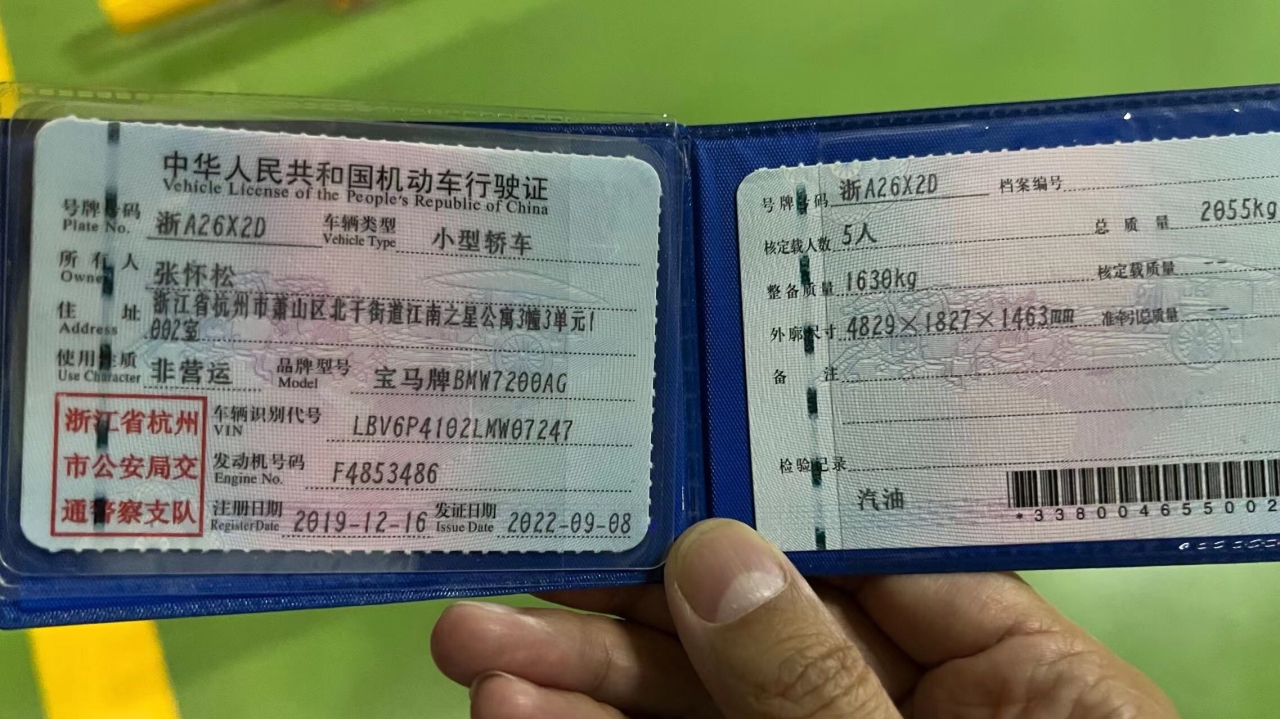 中华人民共和国机动车行驶证
Vehicle License of the People's Republic of China
号牌号码 浙A26X2D 车辆类型 小型轿车
Plate No. Vehicle Type
所有人 张怀松
Owner
住址 浙江省杭州市萧山区北干街道江南之星公寓3幢3单元1
Address 002室
使用性质 非营运 品牌型号 宝马牌BMW7200AG
Use Character Model
浙江省杭州
市公安局交
通警察支队
车辆识别代号 LBV6P4102LMW07247
VIN
发动机号码 F4853486
Engine No.
注册日期 2019-12-16 发证日期 2022-09-08
Register Date Issue Date
号牌号码 浙A26X2D 档案编号
核定载人数 5人 总质量 2055kg
整备质量 1630kg 核定载质量 --
外廓尺寸 4829×1827×1463mm 准牵引总质量 --
备注
检验记录
汽油
*338004655002